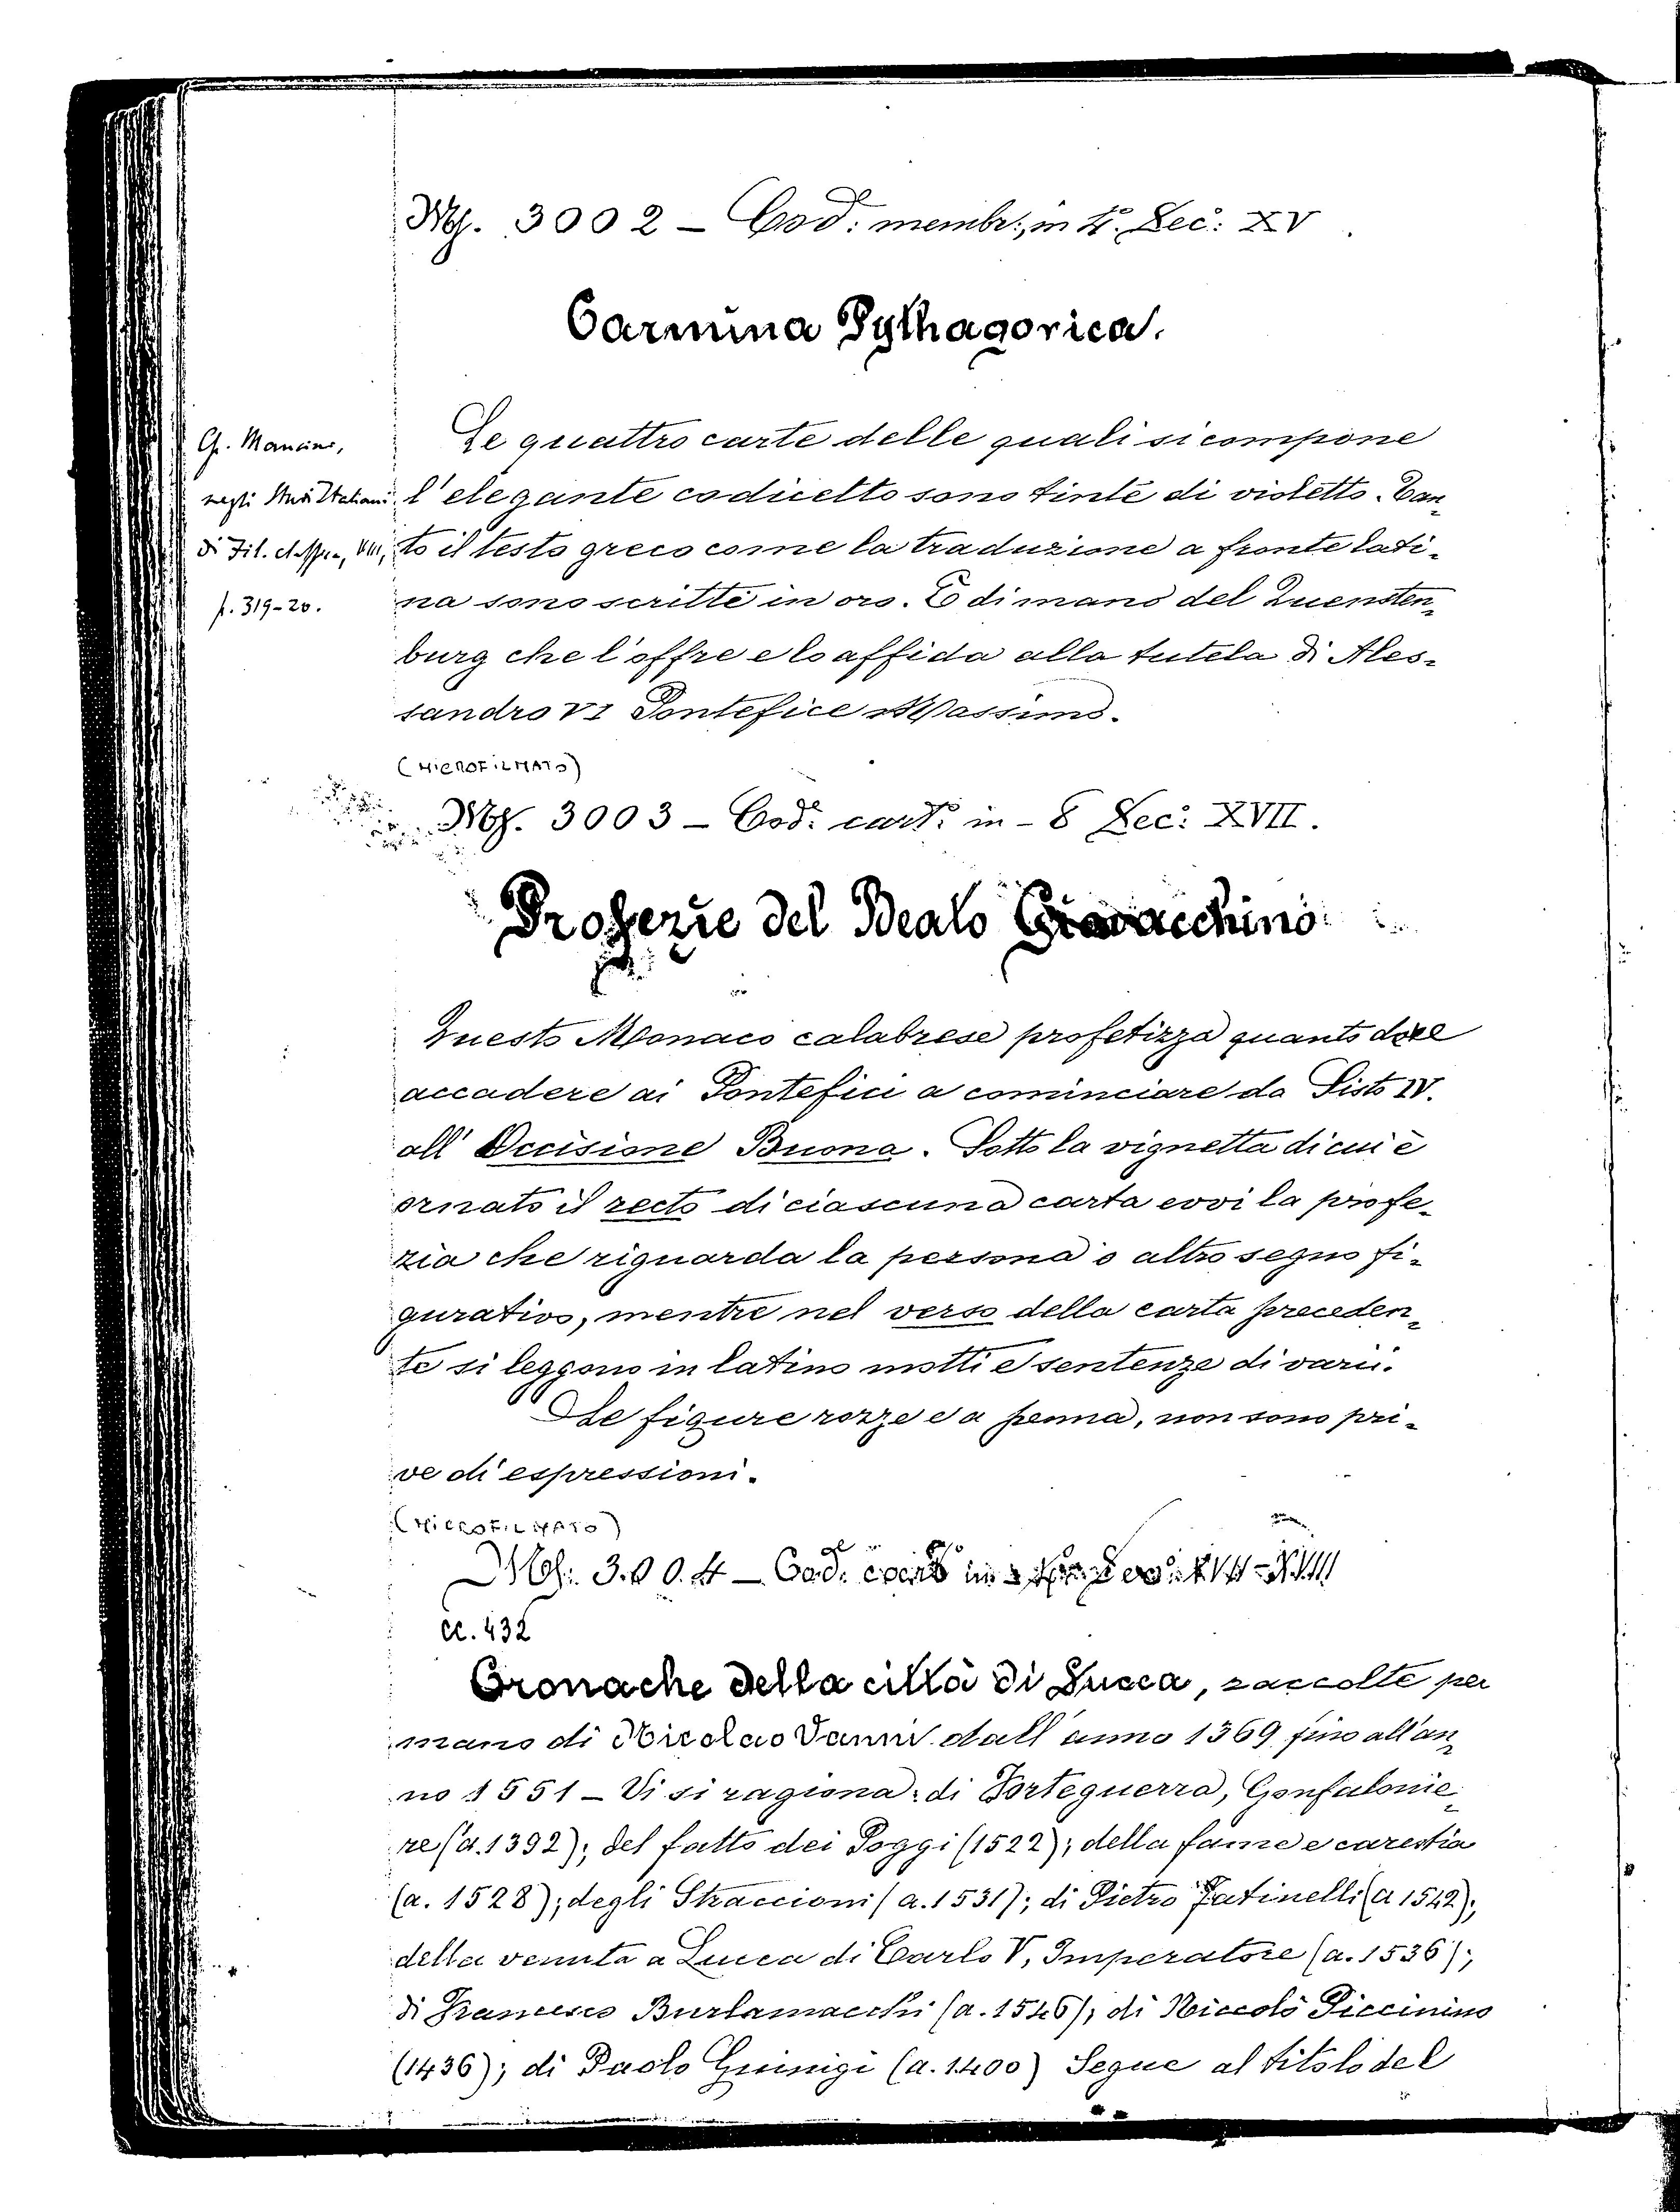 Ms. 3002 – Cod: membr:, in 4º. Sec: XV.
Carmina Pythagorica.
G. Mancini,
negli Studi Italiani
di Fil. classica, VIII,
p. 319-20.
Le quattro carte delle quali si compone
l'elegante codicetto sono tinte di violetto. Tan-
to il testo greco come la traduzione a fronte lati-
na sono scritte in oro. È di mano del Quensten-
burg che l'offre e lo affida alla tutela di Ales-
sandro VI Pontefice Massimo.
(MICROFILMATO)
Ms. 3003 – Cod: cart: in-8 Sec: XVII.
Profezie del Beato Giovacchino
Questo Monaco calabrese profetizza quanto deve
accadere ai Pontefici a cominciare da Sisto IV.
all' Occisione Buona. Sotto la vignetta di cui è
ornato il recto di ciascuna carta evvi la profe-
zia che riguarda la persona o altro segno fi-
gurativo, mentre nel verso della carta preceden-
te si leggono in latino motti e sentenze di varii.
Le figure rozze e a penna, non sono pri-
ve di espressioni.
(MICROFILMATO)
Ms. 3004 – Cod. cart in
cc. 432
Cronache della città di Lucca, raccolte per
mano di Nicolao Vanni dall' anno 1369 fino all'an-
no 1551 – Vi si ragiona: di Forteguerra, Gonfalonie-
re (a. 1392); del fatto dei Poggi (1522); della fame e carestia
(a. 1528); degli Straccioni (a. 1531); di Pietro Fatinelli (a 1542);
della venuta a Lucca di Carlo V, Imperatore (a. 1536);
di Francesco Burlamacchi (a. 1546); di Niccolò Piccinino
(1436); di Paolo Guinigi (a. 1400) Segue al titolo del